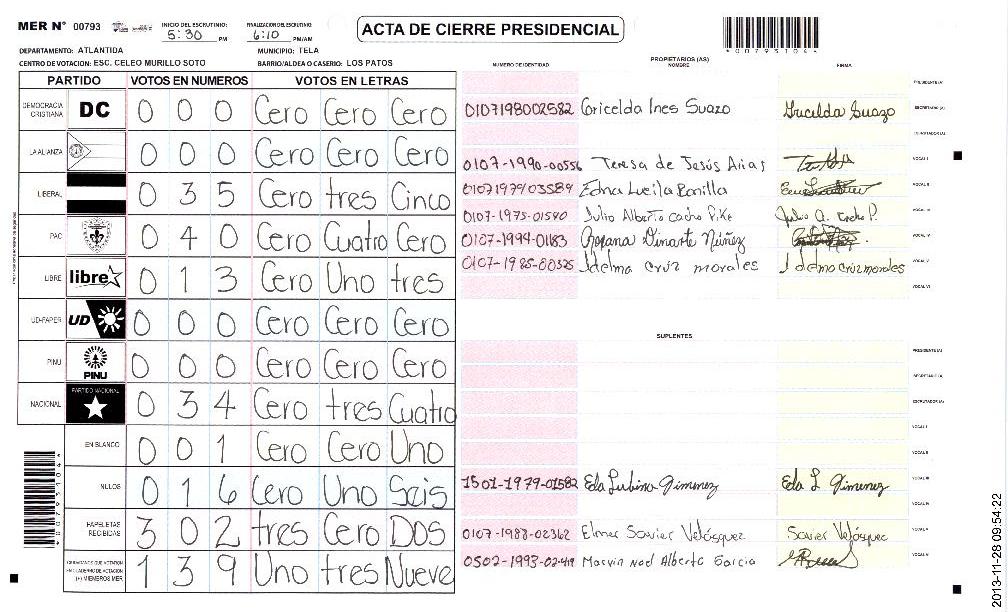 MER N° 00793
INICIO DEL ESCRUTINIO: 5:30 PM
FINALIZACION DEL ESCRUTINIO: 6:10 PM/AM
ACTA DE CIERRE PRESIDENCIAL
*00793104*
DEPARTAMENTO: ATLANTIDA
MUNICIPIO: TELA
CENTRO DE VOTACION: ESC. CELEO MURILLO SOTO
BARRIO/ALDEA O CASERIO: LOS PATOS
PARTIDO VOTOS EN NUMEROS VOTOS EN LETRAS
DEMOCRACIA CRISTIANA DC 0 0 0 Cero Cero Cero
LA ALIANZA 0 0 0 Cero Cero Cero
LIBERAL 0 3 5 Cero tres Cinco
PAC 0 4 0 Cero Cuatro Cero
LIBRE libre 0 1 3 Cero Uno tres
UD-FAPER UD 0 0 0 Cero Cero Cero
PINU PINU 0 0 0 Cero Cero Cero
NACIONAL PARTIDO NACIONAL 0 3 4 Cero tres Cuatro
EN BLANCO 0 0 1 Cero Cero Uno
NULOS 0 1 6 Cero Uno Seis
PAPELETAS RECIBIDAS 3 0 2 tres Cero Dos
CIUDADANOS QUE VOTARON EN CUADERNO DE VOTACION (+) MIEMBROS MER 1 3 9 Uno tres Nueve
*00793104*
PROPIETARIOS (AS)
NUMERO DE IDENTIDAD NOMBRE FIRMA
PRESIDENTE (A)
0107198002582 Gricelda Ines Suazo Gricelda Suazo SECRETARIO (A)
ESCRUTADOR (A)
0107-1990-00556 Teresa de Jesús Arias VOCAL I
0107197903589 Edna Lucila Bonilla VOCAL II
0107-1975-01540 Julio Alberto Cacho Pike VOCAL III
0107-1994-01183 Roxana Dinarte Núñez VOCAL IV
0107-1985-00325 Idelma Cruz morales Idelma Cruz morales VOCAL V
VOCAL VI
SUPLENTES
PRESIDENTE (A)
SECRETARIO (A)
ESCRUTADOR (A)
VOCAL I
VOCAL II
1501-1979-01582 Eda Lubina Gimenez Eda L Gimenez VOCAL III
VOCAL IV
0107-1988-02362 Elmer Savier Velásquez Savier Velásquez VOCAL V
0502-1993-02419 Marvin Noel Alberto Garcia VOCAL VI
2013-11-28 09:54:22